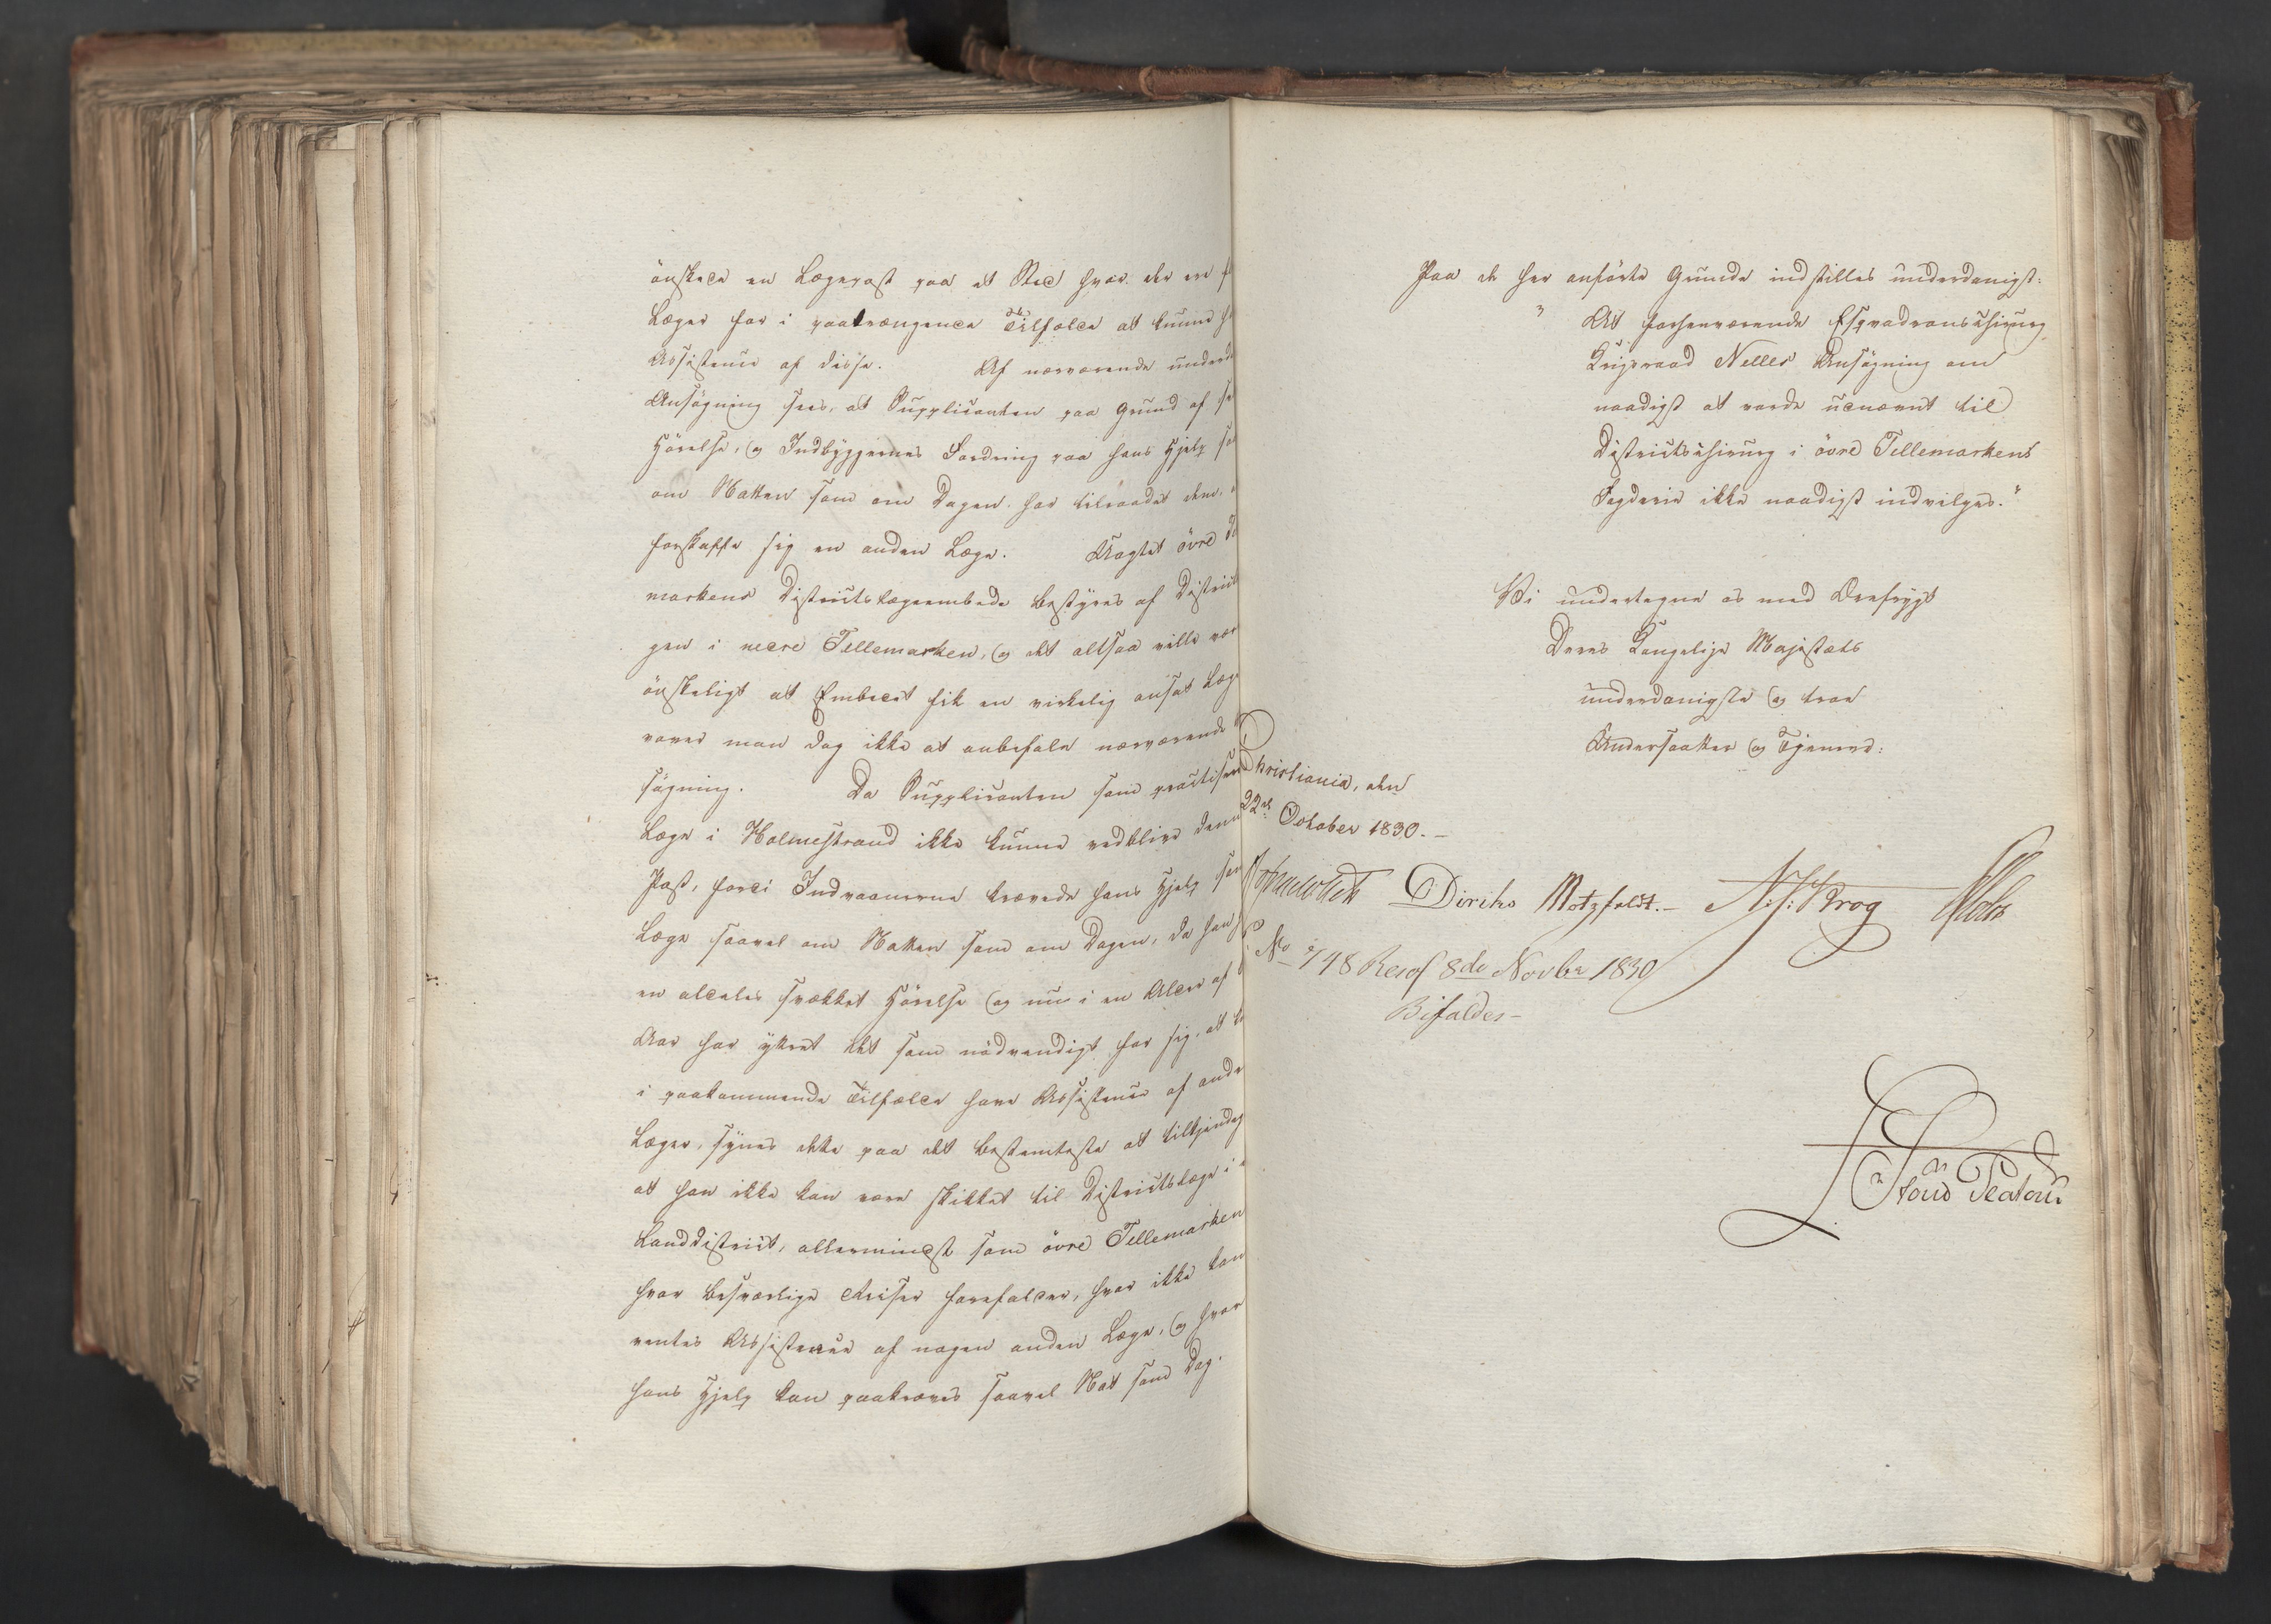 önskede en Lægepost paa et Sted hvor der ere
Læger for i paatrængende Tilfælde at kunne
Assistence af disse. Af nærværende underd
Ansögning sees, at Supplicanten paa Grund af
Hörelse, og Indbyggernes Fordring paa hans Hjelp
om Natten som om Dagen har tilraadet dem,
forskaffe sig en anden Læge. Uagtet övre
markens Districtslægeembede bestyres af District
gen i nedre Tellemarken, og det altsaa vilde vær
önskeligt at Embedet fik en virkelig ansat Læge
vover man dog ikke at anbefale nærværende
sögning. Da Supplicanten som practiser
Læge i Holmestrand ikke kunne vedblive denne
Post, fordi Indvaanerne krævede hans Hjelp som
Læge saavel om Natten som om Dagen, da han
en aldeles svækket Hörelse og nu i en Alder af
Aar har yttret det som nödvendigt for sig, at
i paakommende Tilfælde have Assistence af andre
Læger, synes dette paa det bestemteste at tilkjendeg
at han ikke kan være skikket til Districtslæge i
Landdistrict, allermindst som övre Tellemarken
hvor besværlige Reiser forefalder, hvor ikke kan
ventes Assistence af nogen anden Læge, og hvor
hans Hjelp kan paakræves saavel Nat som Dag.
Paa de her anförte Grunde indstilles underdanigst:
" At forhenværende Esqvadronschirurg,
Krigsraad Nelles Ansögning om
naadigst at vorde udnævnt til
Districtschirurg i övre Tellemarkens
Fogderie ikke naadigst indvilges."
Vi undertegne os med Ærefrygt
Deres Kongelige Majestæts
underdanigste og troe
Undersaatter og Tjenere:
Christiania, den
22de October 1830.-
Diriks Motzfeldt.- N. J. Krog
No 748 Resol 8de Novbr 1830
Bifaldes-